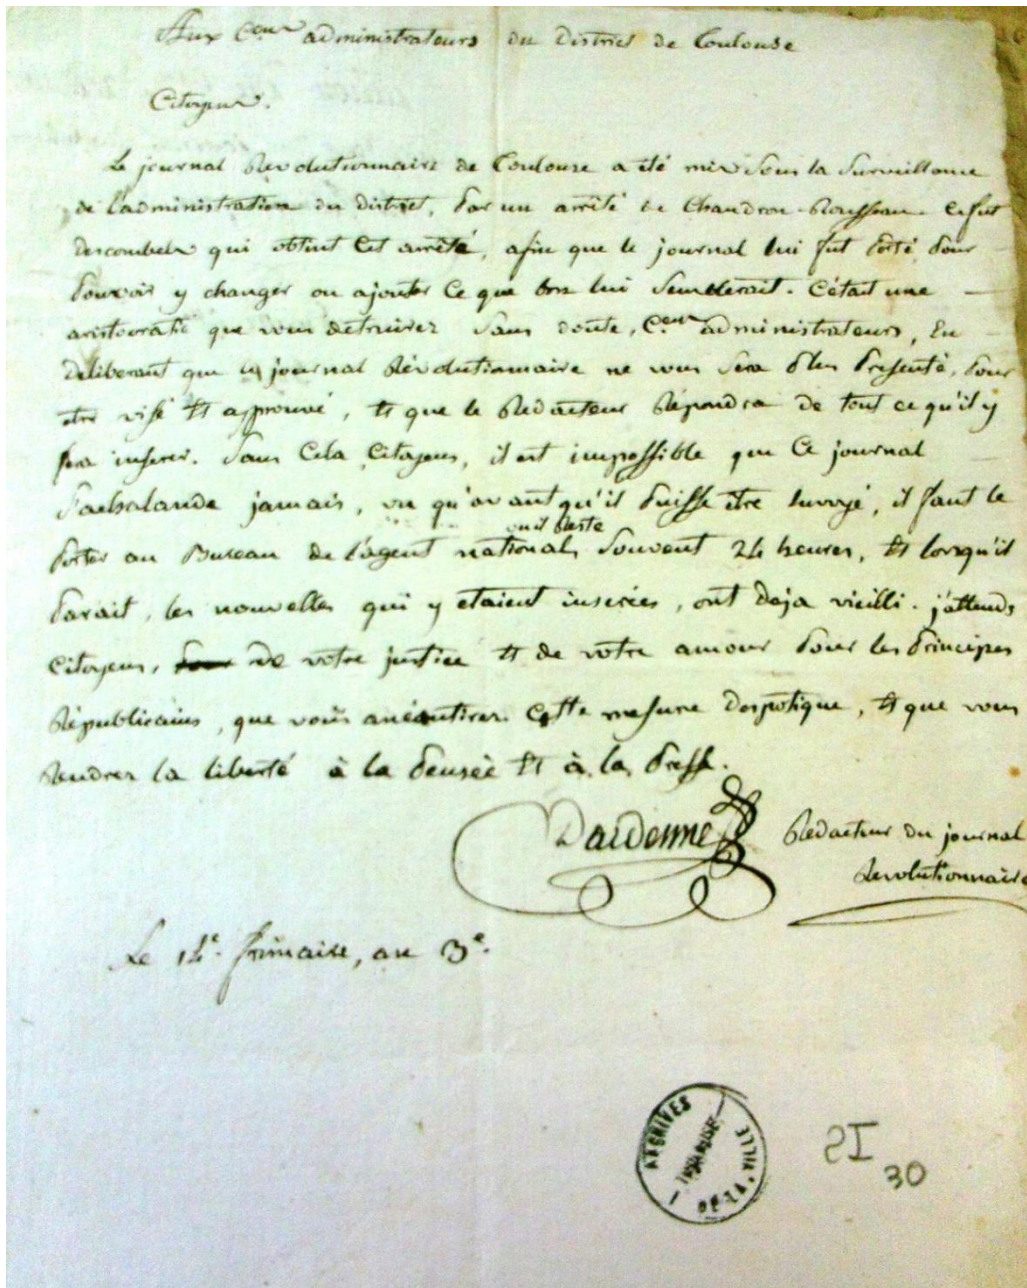 Aux C.ens administrateurs du District de Toulouse
Citoyens.
Le journal Révolutionnaire de Toulouse a été mis sous la surveillance
de l'administration du district, par un arrêté de Chaudron-Rousseau. ce fut
Descombels qui obtint cet arrêté, afin que le journal lui fut porté pour
pouvoir y changer ou ajouter ce que bon lui semblerait. C'était une
aristocratie que vous détruirez sans doute, C.ens administrateurs, En
déliberant que le journal Révolutionnaire ne vous sera plus présenté, pour
etre visé et approuvé, et que le Rédacteur Répondra de tout ce qu'il y
fera inserer. Sans Cela, Citoyens, il est impossible que Ce journal
s'achalande jamais, vu qu'avant qu'il puisse être envoyé, il faut le
porter au Bureau de l'agent national, où il reste souvent 24 heures, et lorsqu'il
parait, les nouvelles qui y etaient inserées, ont deja vieilli. j'attends
citoyens, de votre justice et de votre amour pour les principes
Républicains, que vous anéantirez cette mesure despotique, et que vous
Rendrez la liberté à la pensée et à la presse.
Dardenne Rédacteur du journal
Revolutionnaire
Le 14e. frimaire, an 3e.
ARCHIVES
DE LA VILLE
2I
30